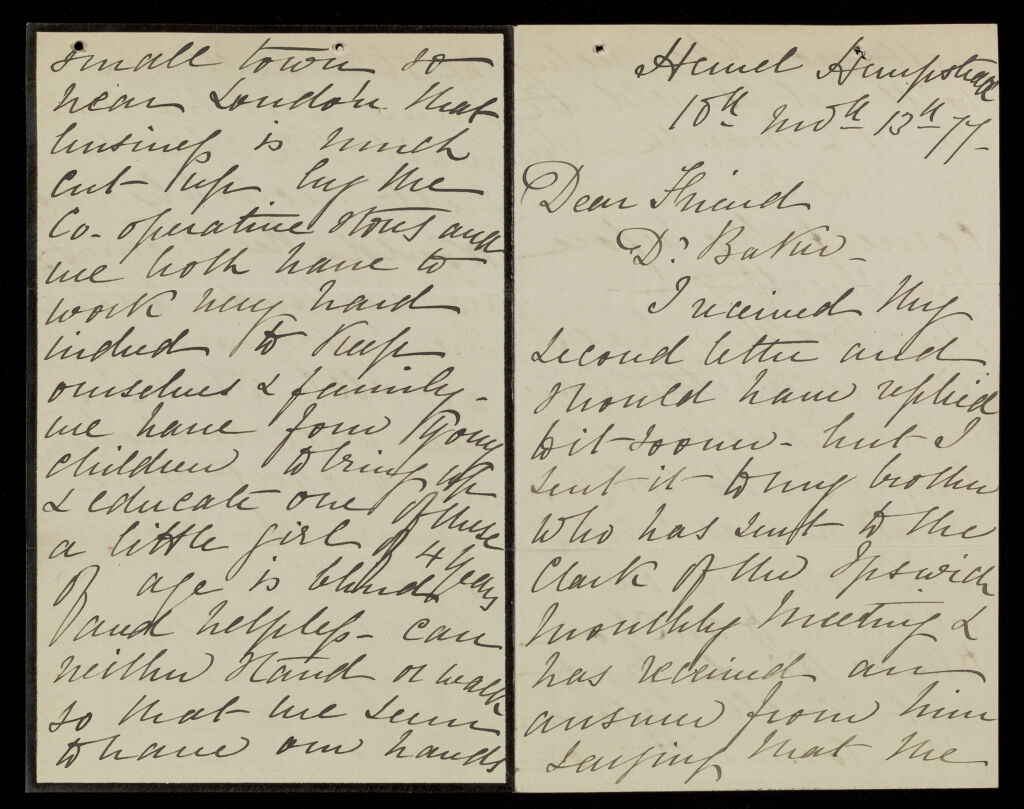 Hemel Hempstead
10th Mo 13th 77-
Dear Friend
Dr Baker-
I received thy
second letter and
should have replied
to it sooner - but I
sent it to my brother
who has sent to the
Clerk of the Ipswich
Monthly Meeting &
has received an
answer from him
saying that the
small town so
near London that
business is much
cut up by the
Co-operative Stores and
we both have to
work very hard
indeed to keep
ourselves & family-
we have four young
children to bring up
& educate one of these
a little girl of 4 years
of age is blind
and helpless - can
neither stand or walk
so that we seem
to have our hands